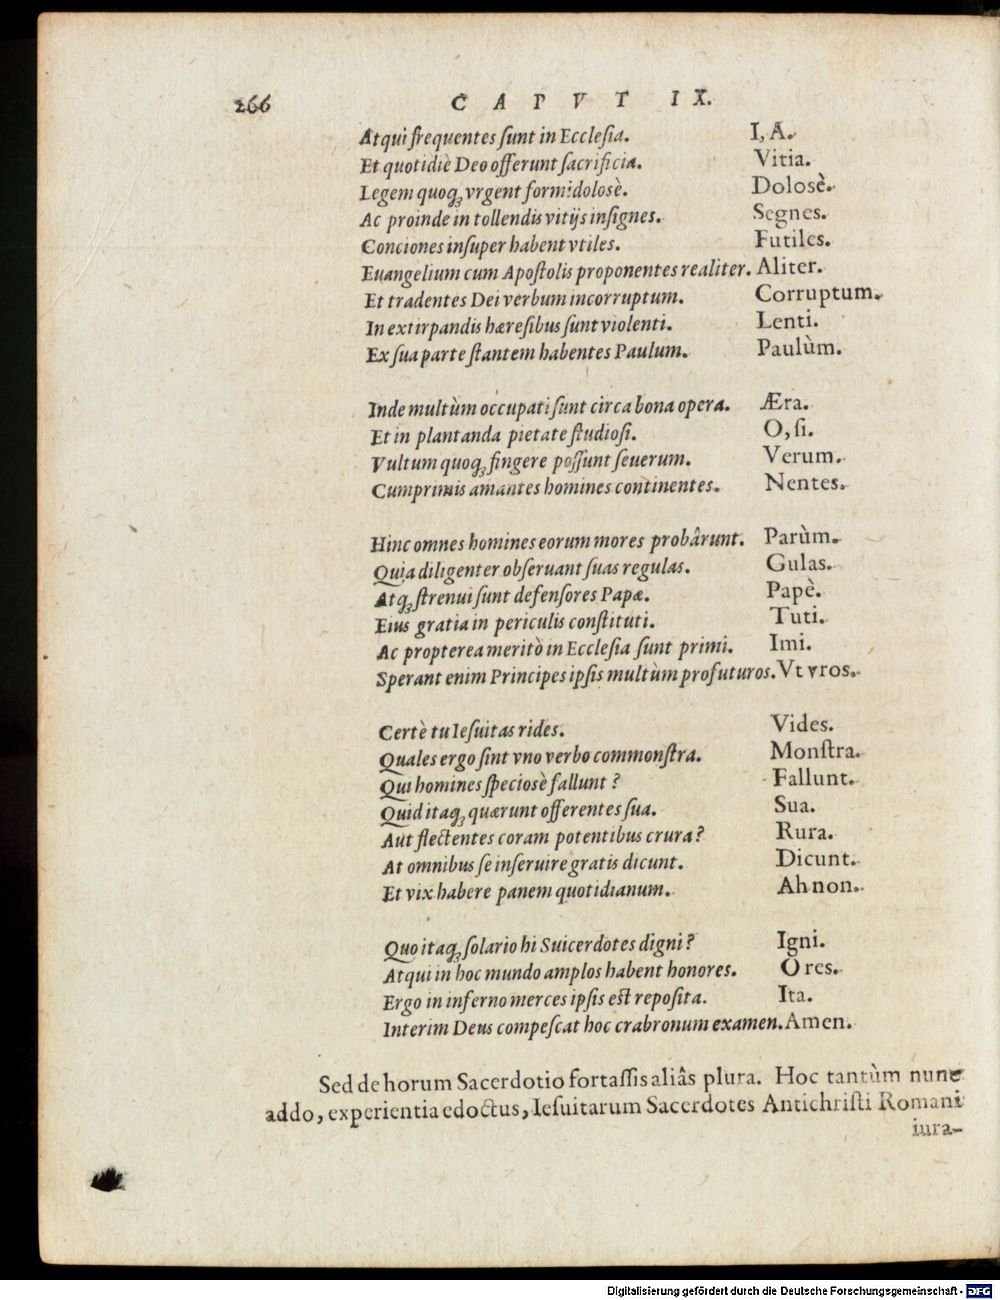 266 CAPVT IX.
Atqui frequentes ſunt in Eccleſia. I, A.
Et quotidiè Deo offerunt ſacrificia. Vitia.
Legem quoq́; vrgent formidolosè. Dolosè.
Ac proinde in tollendis vitijs inſignes. Segnes.
Conciones inſuper habent vtiles. Futiles.
Euangelium cum Apoſtolis proponentes realiter. Aliter.
Et tradentes Dei verbum incorruptum. Corruptum.
In extirpandis hæreſibus ſunt violenti. Lenti.
Ex ſua parte ſtantem habentes Paulum. Paulùm.
Inde multùm occupati ſunt circa bona opera. Æra.
Et in plantanda pietate ſtudioſi. O, ſi.
Vultum quoq; fingere poſſunt ſeuerum. Verum.
Cumprimis amantes homines continentes. Nentes.
Hinc omnes homines eorum mores probârunt. Parùm.
Quia diligenter obſeruant ſuas regulas. Gulas.
Atq; ſtrenui ſunt defenſores Papæ. Papè.
Eius gratia in periculis conſtituti. Tuti.
Ac propterea meritò in Eccleſia ſunt primi. Imi.
Sperant enim Principes ipſis multùm profuturos. Vt vros.
Certè tu Ieſuitas rides. Vides.
Quales ergo ſint vno verbo commonſtra. Monſtra.
Qui homines ſpeciosè fallunt? Fallunt.
Quid itaq; quærunt offerentes ſua. Sua.
Aut flectentes coram potentibus crura? Rura.
At omnibus ſe inſeruire gratis dicunt. Dicunt.
Et vix habere panem quotidianum. Ah non.
Quo itaq; ſolario hi Suicerdotes digni? Igni.
Atqui in hoc mundo amplos habent honores. Ores.
Ergo in inferno merces ipſis eſt repoſita. Ita.
Interim Deus compeſcat hoc crabronum examen. Amen.
Sed de horum Sacerdotio fortaſſis aliâs plura. Hoc tantùm nunc
addo, experientia edoctus, Ieſuitarum Sacerdotes Antichriſti Romani
iura-
Digitalisierung gefördert durch die Deutsche Forschungsgemeinschaft - DFG